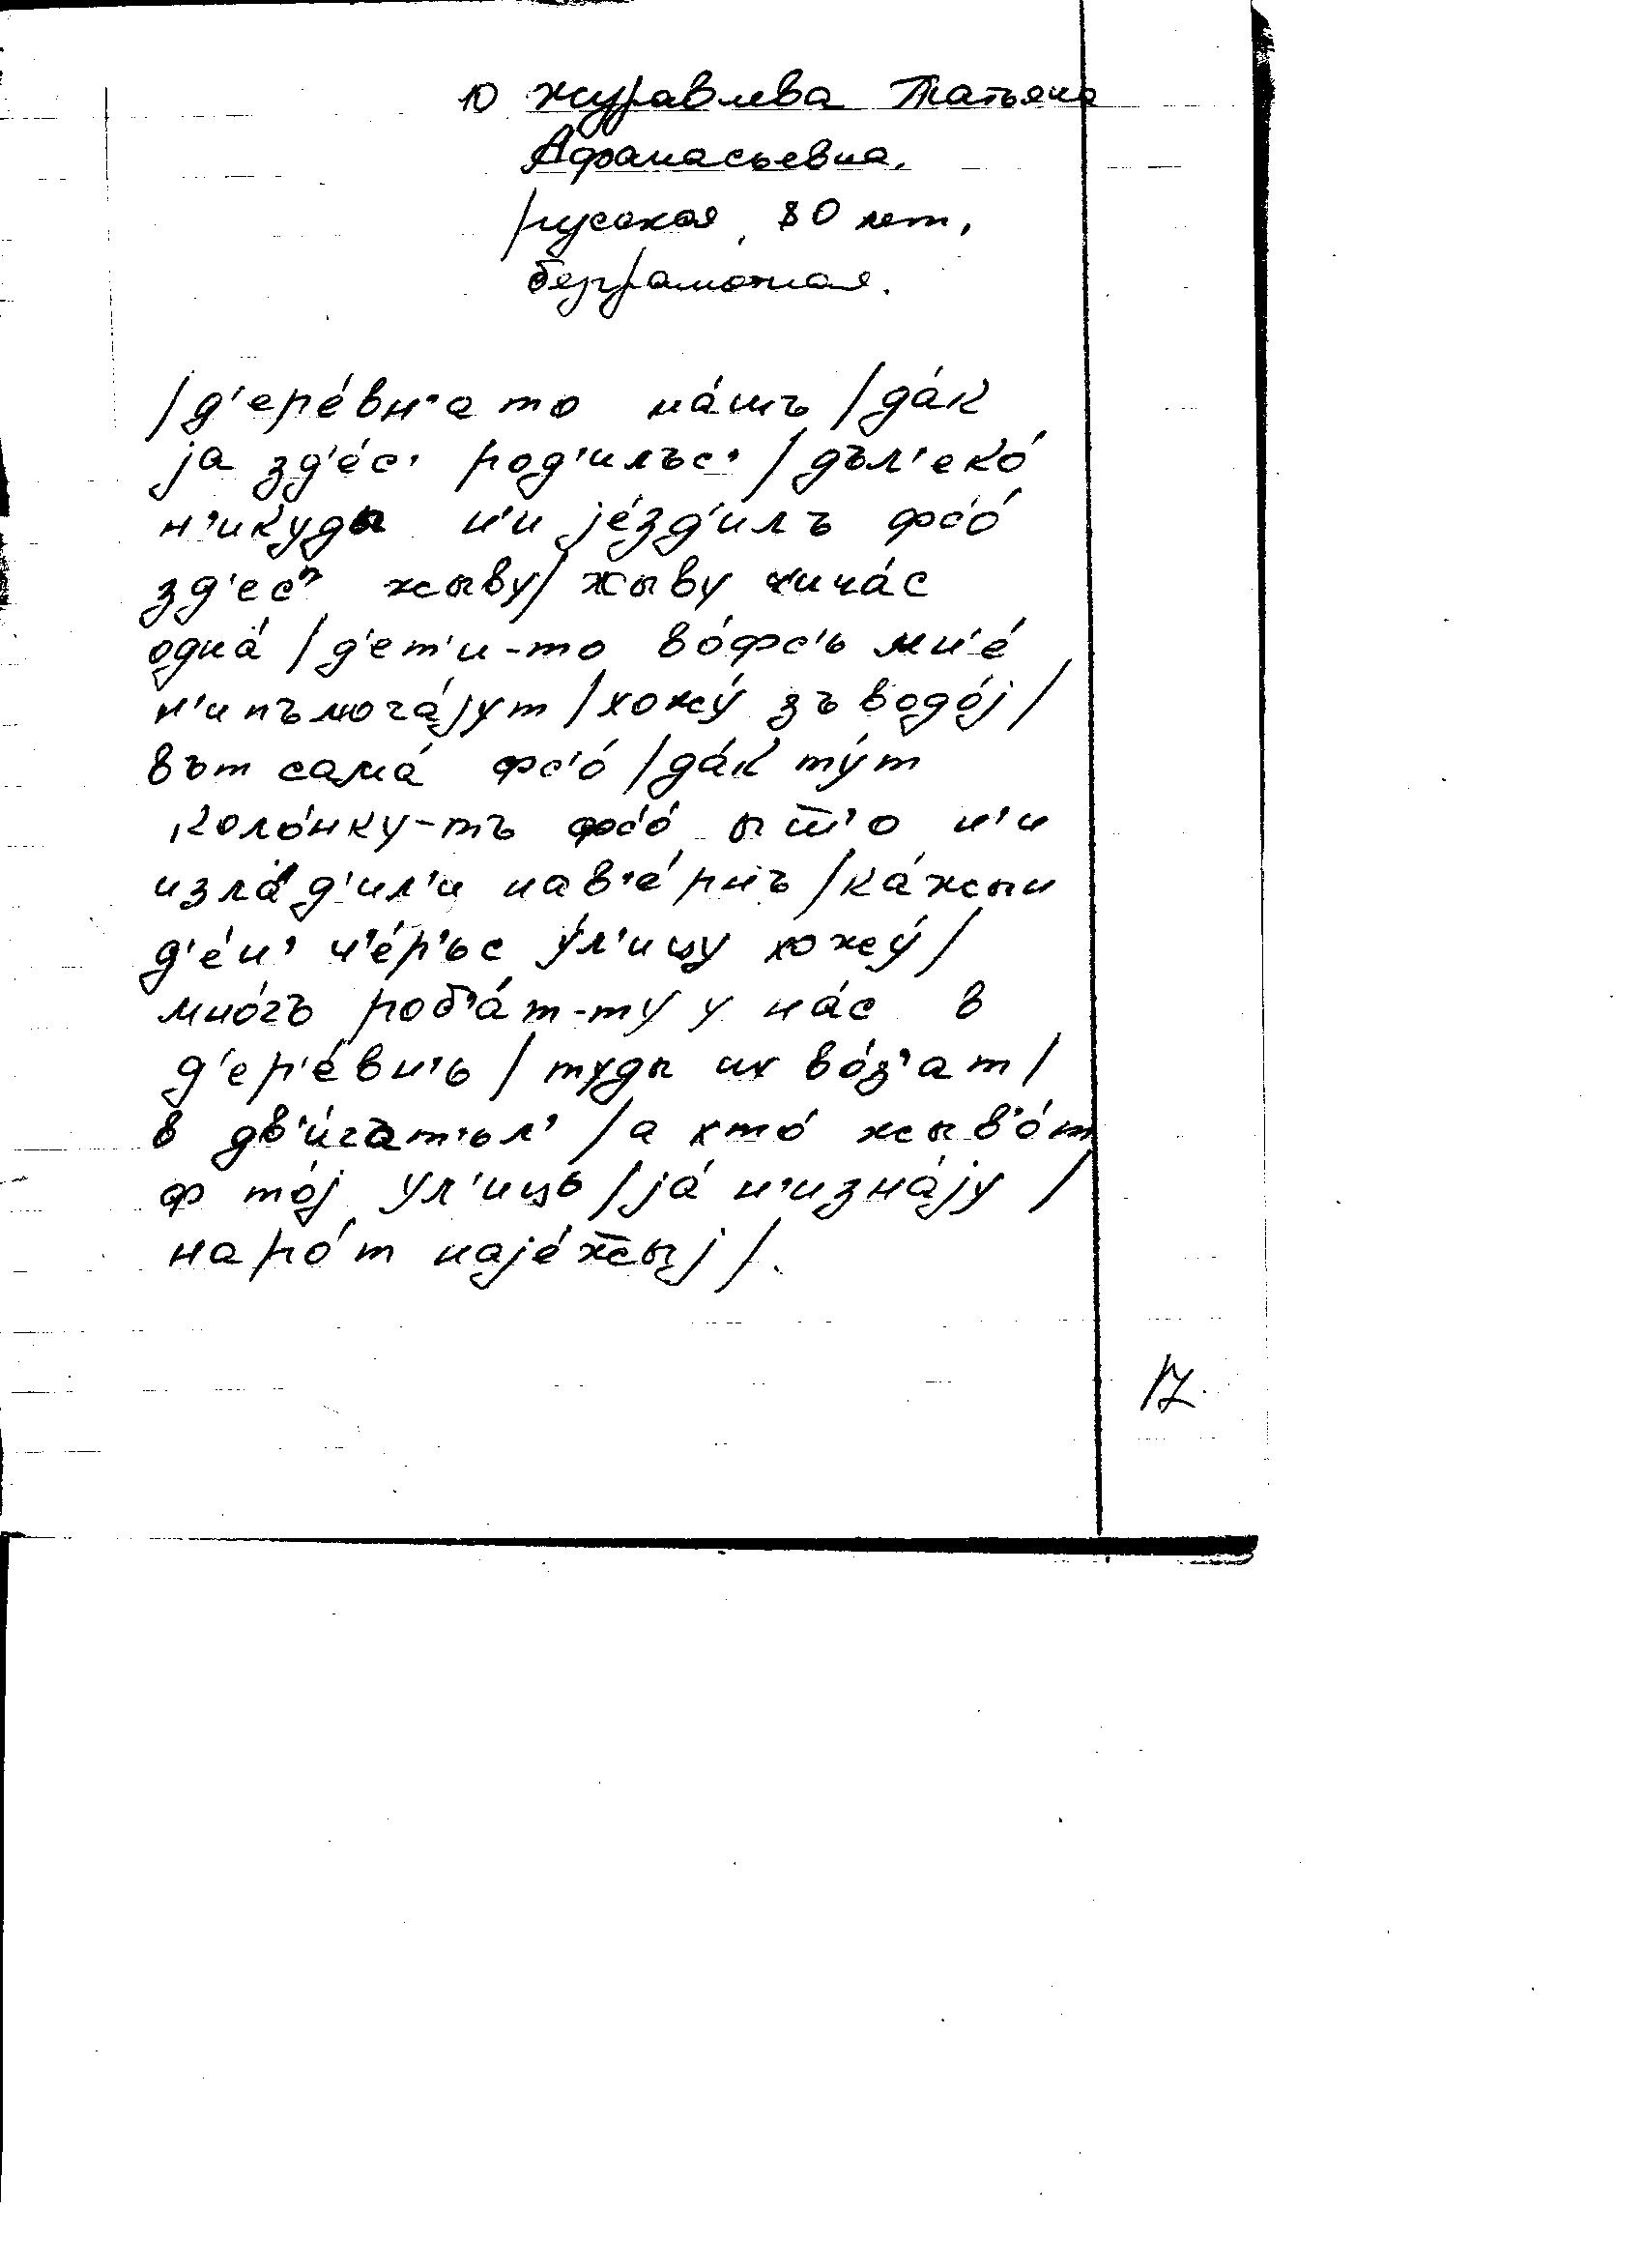 10 Журавлева Татьяна
Афанасьевна.
русская, 80 лет,
безграмотная.
/д'ере́вн'а то на́шъ /да́к
jа зд'е́с' род'илъс' /дъл'еко́
н'икуды н'и jе́зд'илъ фс'о́
зд'ес' жыву/ жыву чича́с
одна́ /д'ет'и-то во́фс'ь мн'е́
н'ипъмога́jут /хожу́ зъ водо́j/
вът сама́ фс'о́ /да́к ту́т
коло́нку-тъ фс'о́ н'и
изла́д'ил'и нав'е́рнъ /ка́жыи
д'е́н' ч'е́р'ьс у́л'ицу хожу́/
мно́гъ роб'а́т-ту у на́с в
д'ер'е́вн'ь / туды их во́з'ат/
в дв'и́гат'ьл' /а хто́ жыв'о́т
ф то́j ул'иць /jа́ н'изна́jу /
наро́т наjе́жыj /.
17.